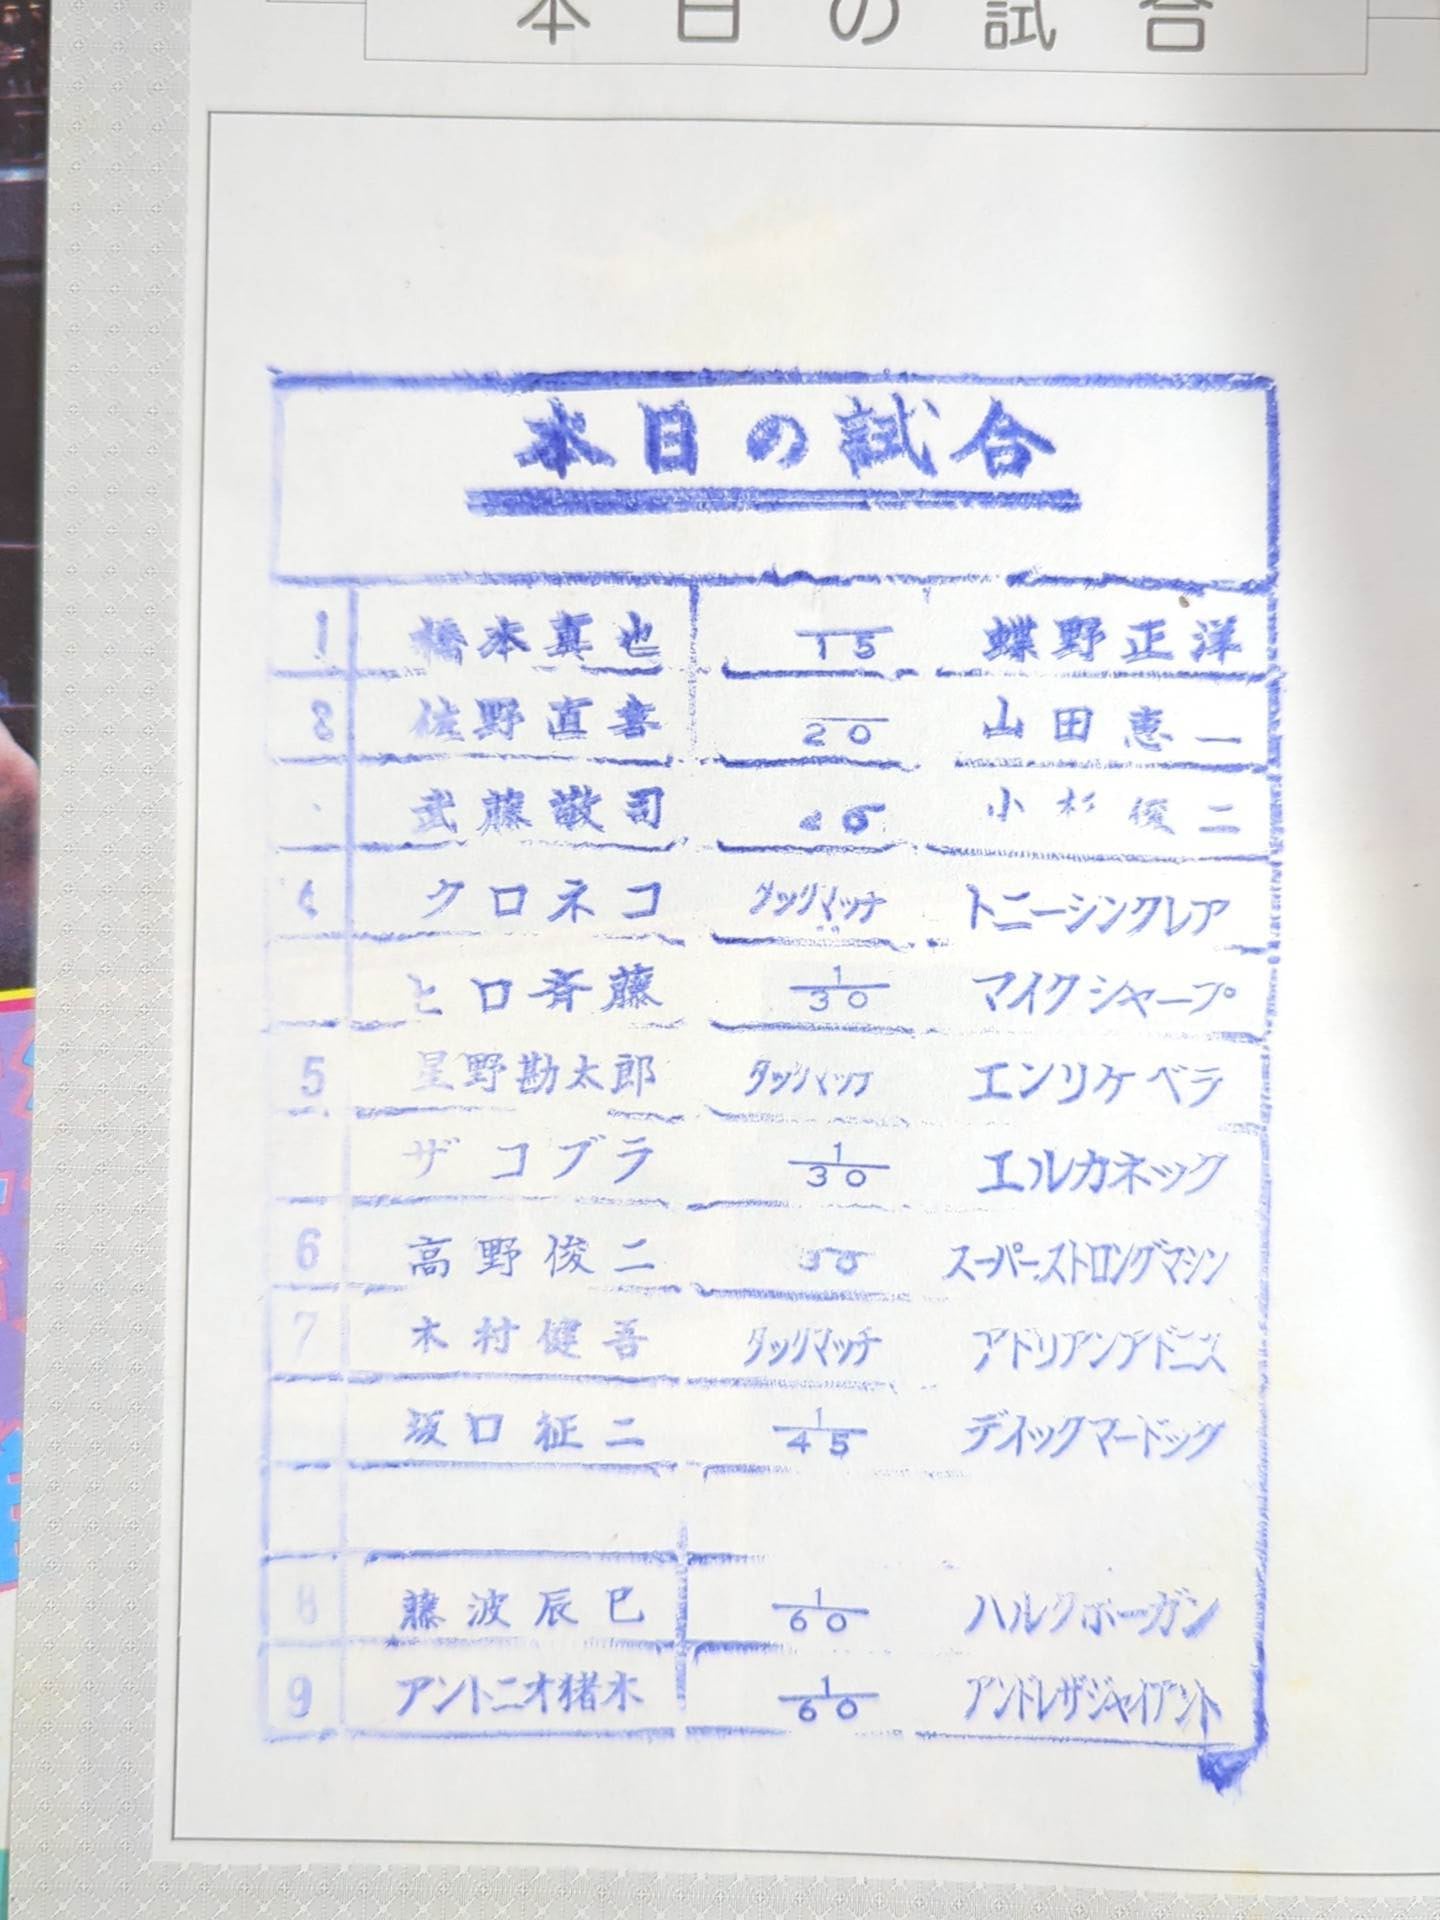 本日の試合
本日の試合
1 橋本真也 15 蝶野正洋
2 佐野直喜 20 山田恵一
武藤敬司 20 小杉俊二
4 クロネコ タッグマッチ トニーシンクレア
ヒロ斉藤 1/30 マイクシャープ
5 星野勘太郎 タッグマッチ エンリケベラ
ザコブラ 1/30 エルカネック
6 高野俊二 30 スーパーストロングマシン
7 木村健吾 タッグマッチ アドリアンアドニス
坂口征二 1/45 デイックマードック
8 藤波辰巳 1/60 ハルクホーガン
9 アントニオ猪木 1/60 アンドレザジャイアント